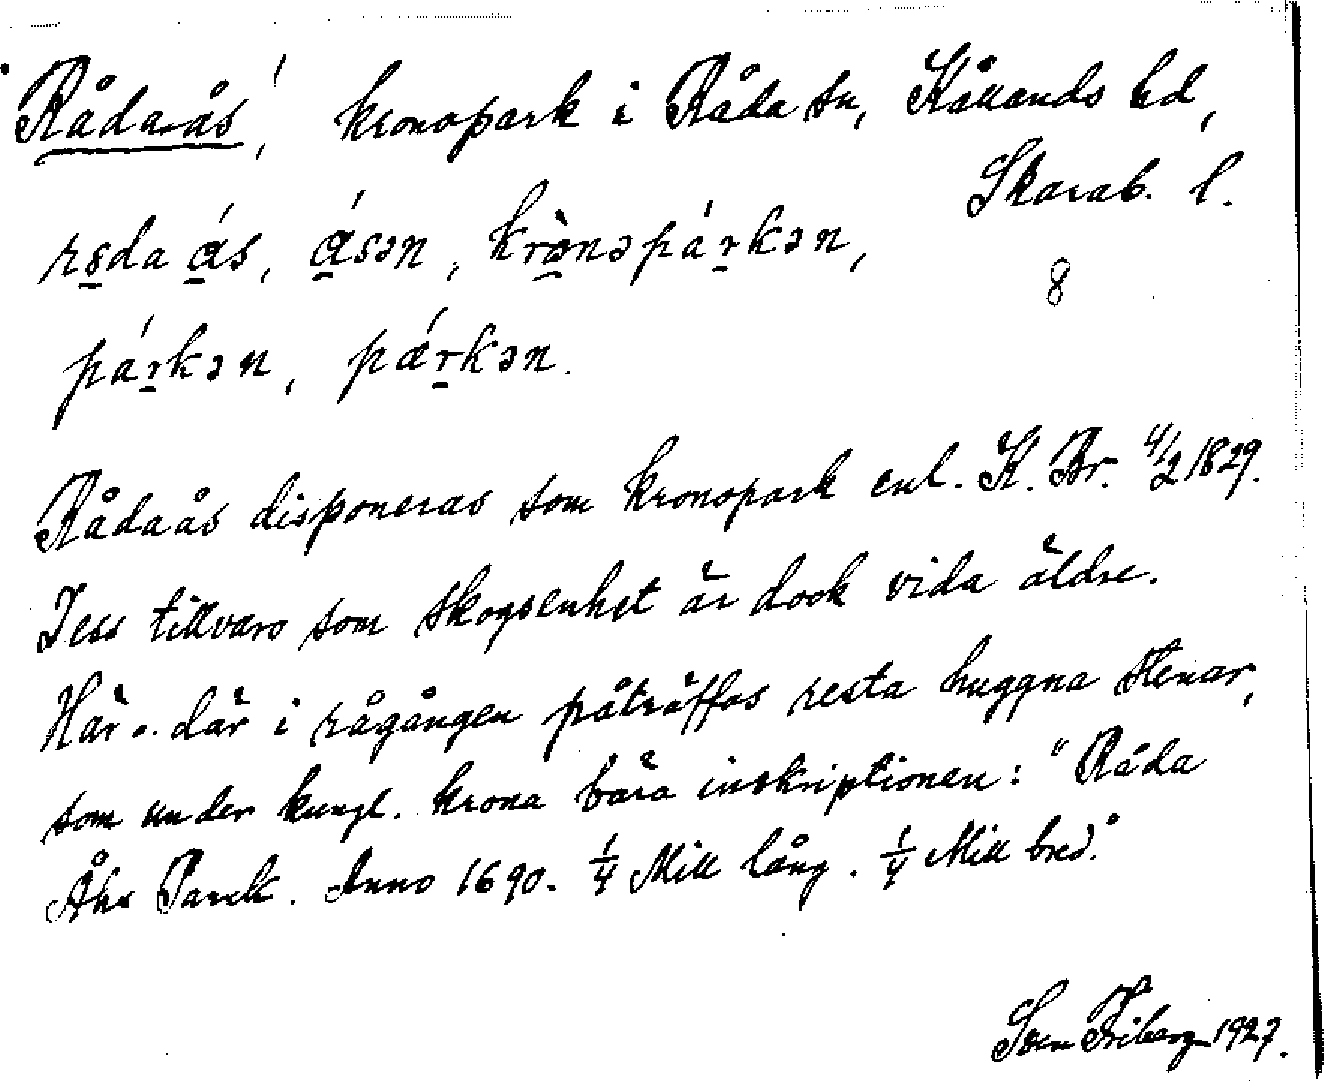 Rådaås, kronopark i Råda sn, Kållands hd,
Skarab. l.
rɷda ɑ́s, ɑ́sən, krònəpárkən,
8
párkən, pɑ́rkən.
Rådaås disponeras som kronopark enl. K. Br. 4/2 1829.
Dess tillvaro som skogsenhet är dock vida äldre.
Här o. där i rågången påträffas resta huggna stenar,
som under kungl. krona bära inskriptionen: "Råda
Åhs Parck. Anno 1690. 1/4 Mill lång. 1/4 Mill bred."
Sven Friberg 1927.